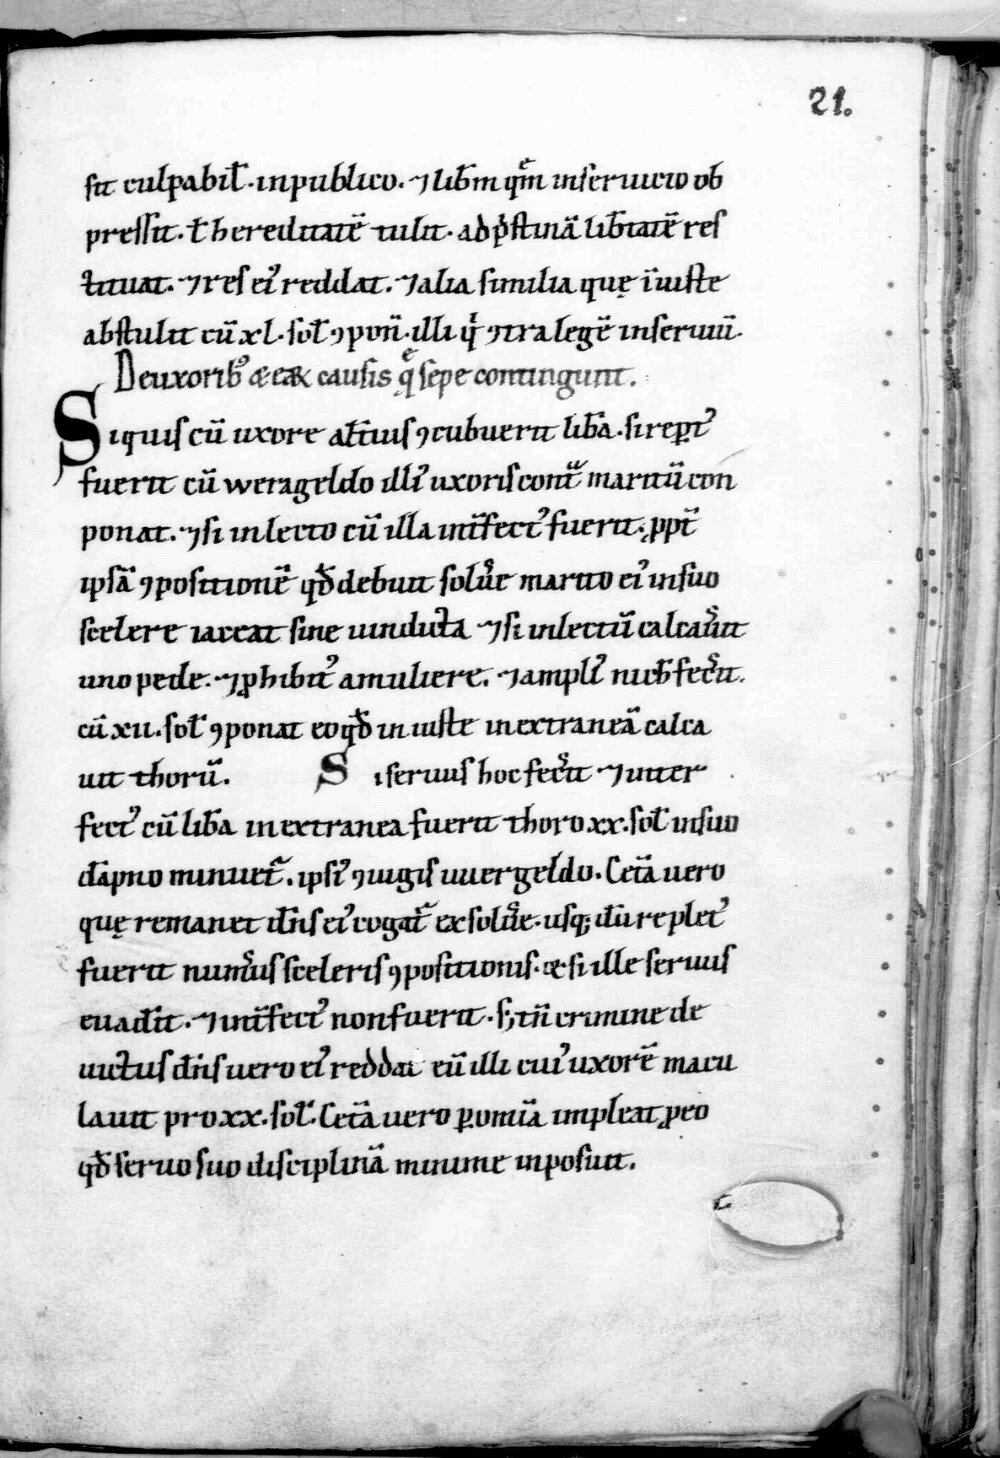 21.
sit culpabil̄. in publico. ⁊ lib̄m quē̄m inseruicio ob
pressit. ł hereditatē tulit. ad p̄stinā lib̄tatē res
tituat. ⁊ res ei᷒ reddat. ⁊ alia similia quę iniuste
abstulit cū xl. sol̄ ꝯponat̄. illi qͥ ꝯtra legē inseruiuit.
De uxorib᷒ & eaꝝ causis qͤ sepe contingunt.
Si quis cū uxore alt̄ius ꝯcubuerit lib̄a. si rep̱t᷒
fuerit cū werageldo illi᷒ uxoris contͣ maritū con
ponat. ⁊ si in lecto cū illa int̄fect᷒ fuerit. ꝓpt̄
ipsā ꝯpositionē qd̄ debuit solu̾e marito ei᷒ in suo
scelere iaceat sine uindicta ⁊ si in lectū calcau̾it
uno pede. ⁊ ꝓhibit᷒ a muliere. ⁊ ampli᷒ nichil fec̾it.
cū xii. sol̄ ꝯponat eo qd̄ in iuste in extraneā calca
uit thorū. Si seruus hoc fec̾it ⁊ inter
fect᷒ cū lib̄a in extranea fuerit thoro. xx. sol̄ in suo
dāpno minuet̄. ipsi᷒ ꝯiugis uuergeldo. Cet̄a uero
quę remanet dn̄s ei᷒ cogat̄ exsolu̾e. usq; dū replet᷒
fuerit num̾us sceleris ꝯpositionis. & si ille seruus
euad̾it. ⁊ int̄fect᷒ non fuerit. s; tn̄ crimine de
uictus dn̄s uero ei᷒ reddat eū illi cui᷒ uxorē macu
lauit pro xx. sol̄. Cet̄a uero ꝑ om̄ia impleat ꝓ eo
qd̄ seruo suo disciplinā minime inposuit.